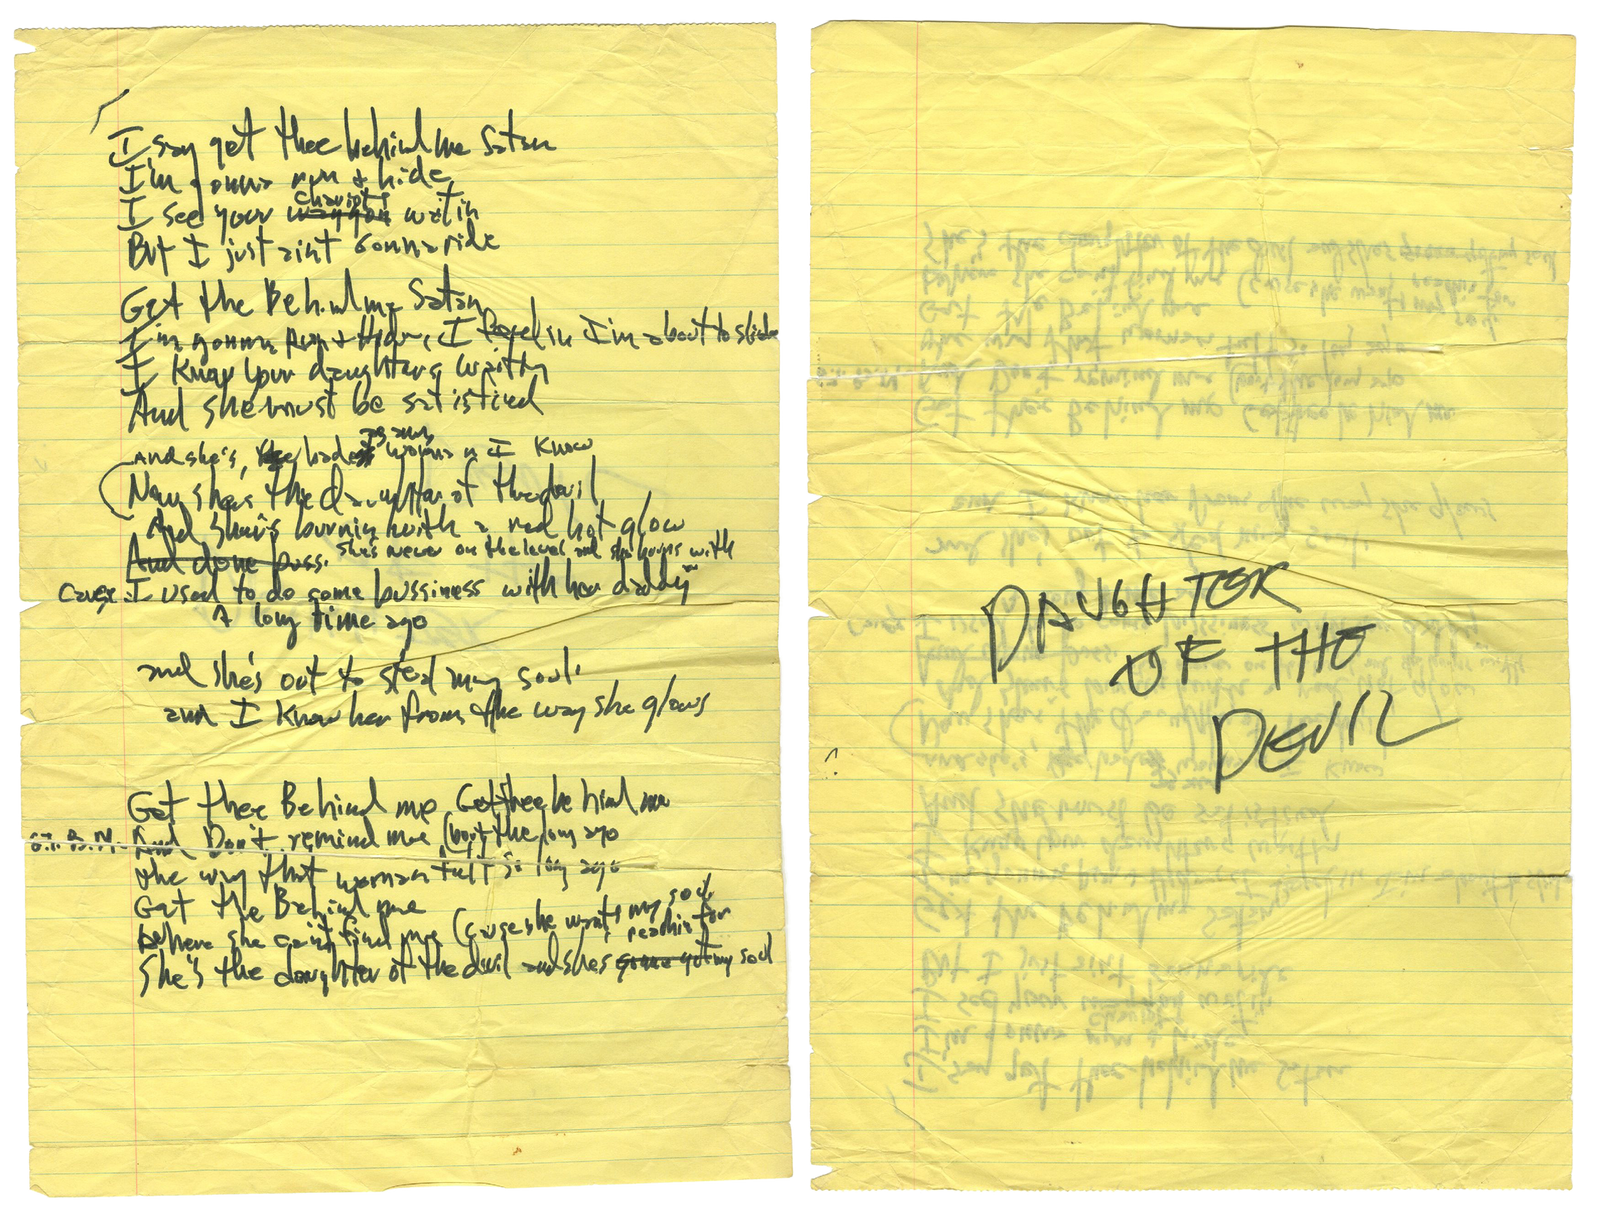 I say get thee behind me Satan
I'm gonna run + hide
chariot's
I see your waggon waitin
But I just aint gonna ride
Get the Behind me Satan
I'm gonna Run + Hide, I feel in I'm about to slide
I know your daughters waitin
And she must be satisfied
And she's, the baddest woman I Know
Now she's the daughter of the devil
And she's burnin with a red hot glow
And done buss. she's never on the level and she hangs with
Cause I used to do some bussiness with her daddy
A long time ago
and she's out to steal my soul.
and I know her from the way she glows
Get thee Behind me Get thee behind me
G.T.B.M. And Don't remind me (bout the long ago
the way that woman felt so long ago
Get the Behind me
where she can't find me (cause she wants my soul
reachin for
She's the daughter of the devil and she's gonna get my soul
DAUGHTER
OF THE
DEVIL